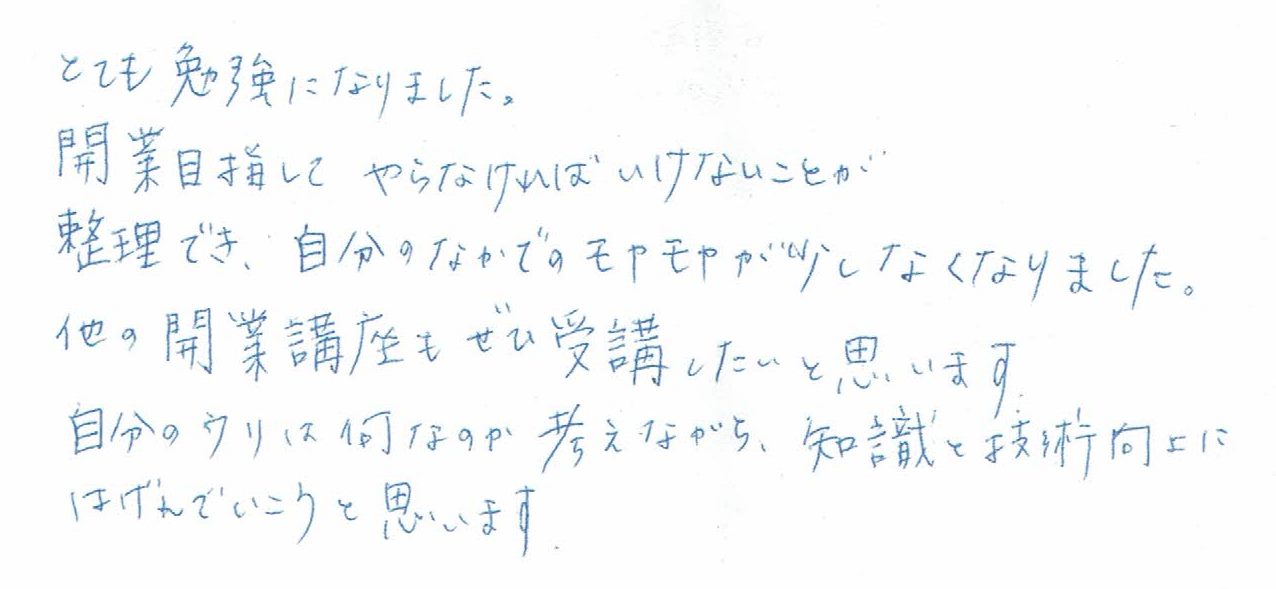 とても勉強になりました。
開業目指して やらなければいけないことが
整理でき、自分のなかでのモヤモヤが少しなくなりました。
他の開業講座もぜひ受講したいと思います.
自分のウリは何なのか考えながら、知識と技術向上に
はげんでいこうと思います.